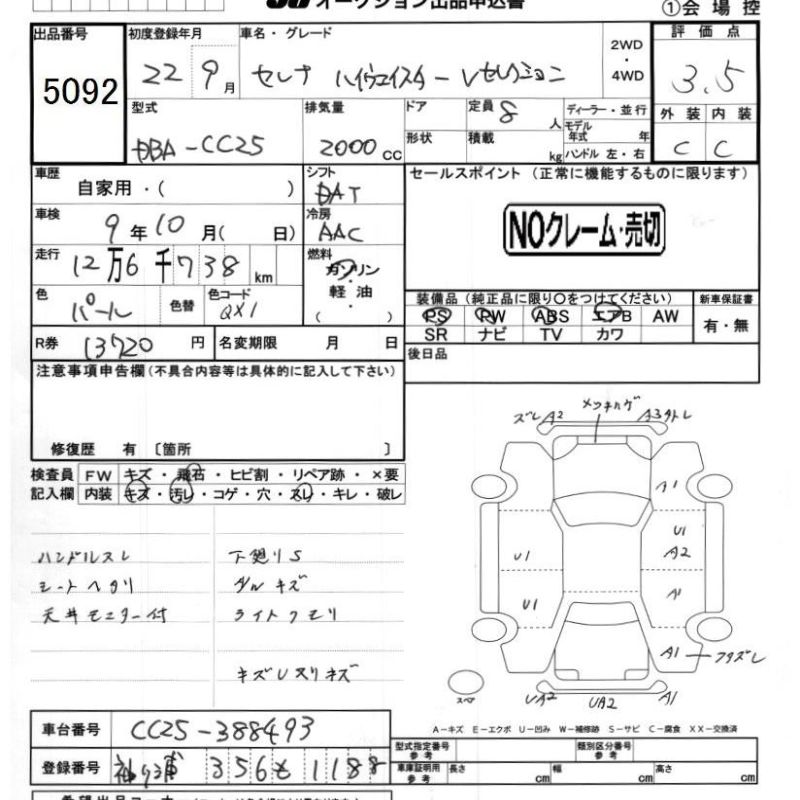 オークション出品申込書
①会場控
出品番号 5092
初度登録年月 22 9月
車名・グレード セレナ ハイウェイスター Vセレクション
2WD・4WD
評価点 3.5
型式 DBA-CC25
排気量 2000cc
ドア
形状
定員 8人
積載 kg
ディーラー・並行
モデル年式 年
ハンドル 左・右
外装 C 内装 C
車歴 自家用・( )
シフト DAT
セールスポイント (正常に機能するものに限ります)
NOクレーム・売切
車検 9年10月( 日)
冷房 AAC
走行 12万6千738km
燃料 ガソリン・軽油 ( )
色 パール 色替 色コード QX1
装備品 (純正品に限り○をつけてください)
PS PW ABS エアB AW
SR ナビ TV カワ
新車保証書 有・無
R券 13720円 名変期限 月 日
後日品
注意事項申告欄 (不具合内容等は具体的に記入して下さい)
修復歴 有 〔箇所 〕
検査員記入欄
FW キズ・飛石・ヒビ割・リペア跡・×要
内装 キズ・汚レ・コゲ・穴・スレ・キレ・破レ
ハンドルスレ
シートヘタリ
天井モニター付
下廻りS
ダルキズ
ライトクモリ
キズUヌリキズ
メッキハゲ
ズレA2 A3タトレ
A1
U1 U1 A2
U1 A1
A1 フタズレ
スペア
UA2 UA2 A1
A-キズ E-エクボ U-凹み W-補修跡 S-サビ C-腐食 XX-交換済
車台番号 CC25-388493
登録番号 袖ヶ浦 356 も 1188
型式指定番号 参考
類別区分番号 参考
車庫証明用 参考 長さ cm 幅 cm 高さ cm